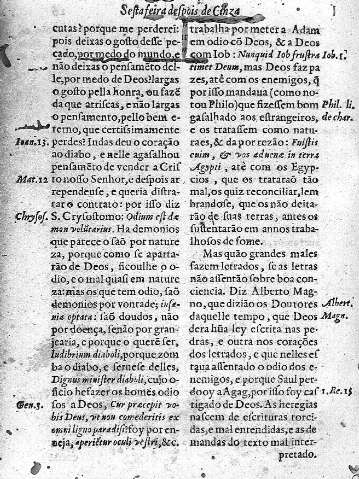 Sesta feira despois de Cinza
cutas? porque me perderei:
pois deixas o gosto desse pe-
cado, por medo do mundo, e
não deixas o pensamẽto del-
le, por medo de Deos? largas
o gosto pella honra, ou fazẽ
da que atriscas, e não largas
o pensamento, pello bem e-
terno, que certissimamente
Ioan. 13. perdes? Indas deu o coração
ao diabo, e nelle agasalhou
pensamẽto de vender a Chris
Mat. 12 to nosso Senhor, e despois ar
rependeuse, e queria distra-
tar o contrato: por isso diz
Chrysos. S. Crysostomo: Odium est dæ
mon voluntarius. Ha demonios
que parece o saõ por nature
za, porque como se aparta-
rão de Deos, ficoulhe o o-
dio, e o mal quasi em natu-
za: mas os que tem odio, saõ
demonios por vontade; insa-
nia optata: saõ doudos, não
por doença, senão por gran-
jearia, e porque o querẽ ser,
ludibrium diaboli, porque zom
ba o diabo, e serue se delles,
Dignus minister diaboli, cujo o-
ficio he fazer os homẽs odio
Gen. 3. sos a Deos, Cur præcepit vo-
bis Deus, vt non comederitis ex
omni ligno paradisi: foy por en-
ueja, aperietur oculi vestri, &c.
trabalha por meter a Adam
em odio cõ Deos, & a Deos
com Iob: Nunquid Iob frustra Iob. 1.
timet Deum, mas Deos faz pa
zes, até com os enemigos, q̃
por isso mandaua (como no-
tou Philo) que fizessem bom Phil. li.
gasalhado aos estrangeiros, de char.
e os tratassem como natu-
raes, & da por rezão: Fuistis
enim, & vos aduenæ in terra
Ægypti, até com os Egyp-
cios, que os tratarão tão
mal, os quiz reconciliar, lem
brandose, que os não deita-
rão de suas terras, antes os
sustentarão em annos traba-
lhosos de fome.
Mas quão grandes males
fazem letrados, se as letras
não assentão sobre boa con-
ciencia. Diz Alberto Mag-
no, que dizião os Doutores Albert.
daquelle tempo, que Deos Magn.
dera hũa ley escrita nas pe-
dras, e outra nos corações
dos letrados, e que nelles es
taua assentado o odio dos e-
nemigos, e porque Saul per-
doou a Agag, por isso foy cas 1. Re. 15
tigado de Deos. As heregias
nascem de escrituras torci-
das, e mal entendidas, e as de
mandas do texto mal inter-
pretado.